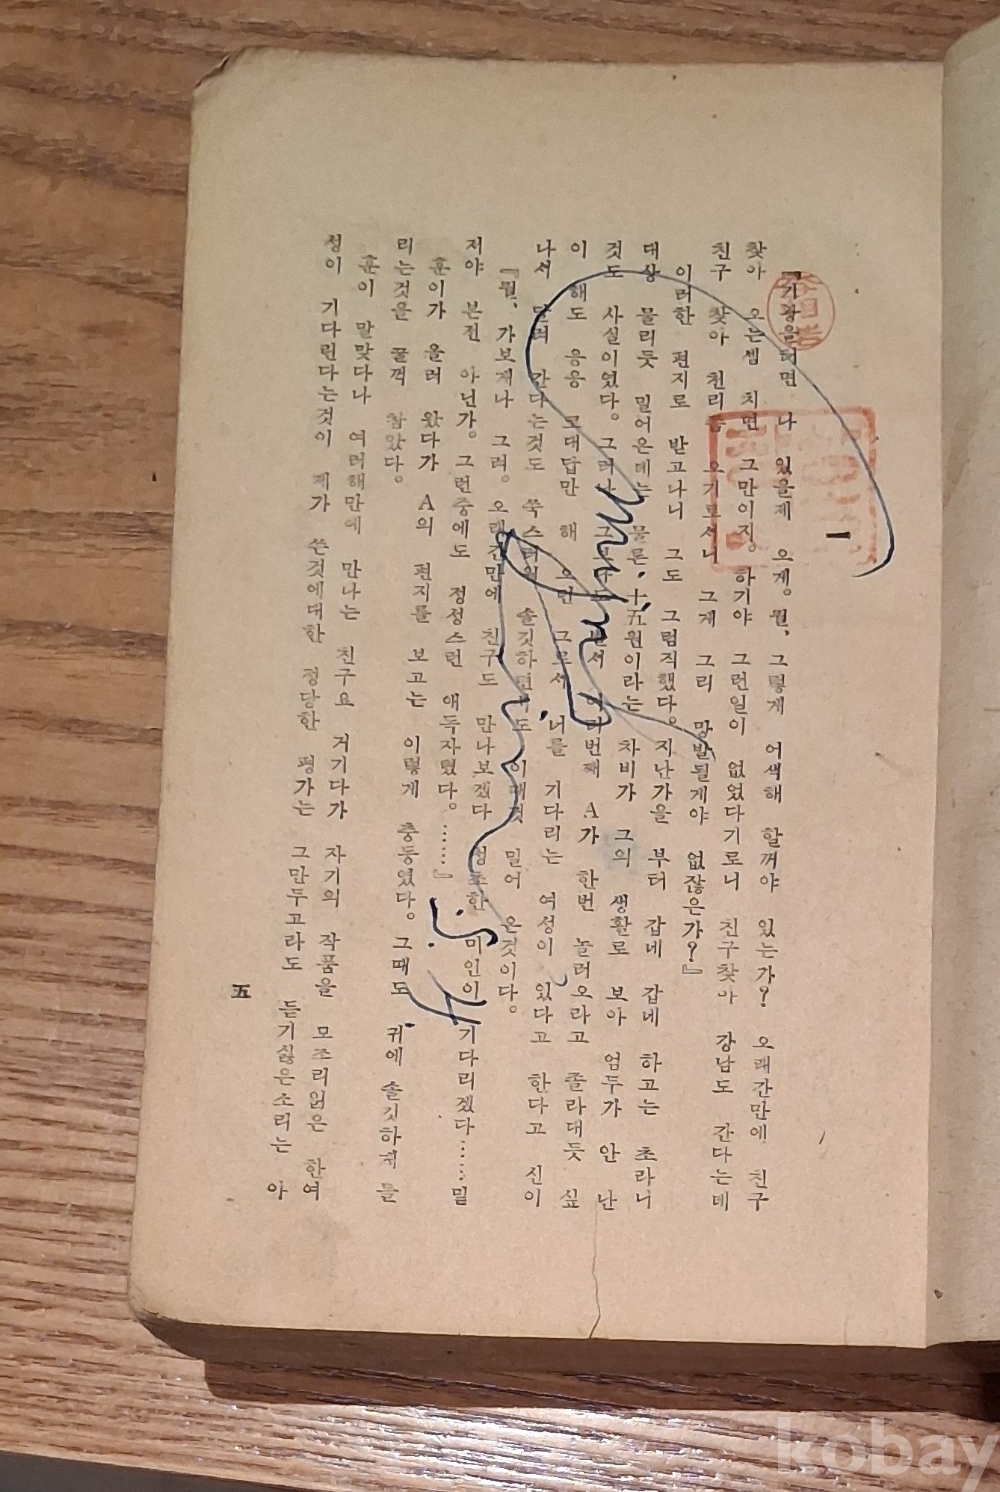 一
『기왕을테면 나 있을제 으게. 뭘, 그렇게 어색해 할꺼야 있는가? 오래간만에 친구
찾아 오는셈 치면 그만이지. 하기야 그런일이 없었다기로니 친구찾아 강남도 간다는데
친구 찾아 천리를 오기로서니 그게 그리 망발될게야 없잖은가?』
이러한 편지로 받고나니 그도 그럼직했다. 지난가을 부터 갑네 갑네 하고는 초라니
대상 물리듯 밀어온데는 물론 十五원이라는 차비가 그의 생활로 보아 엄두가 안 난
것도 사실이였다. 그러나 여러번째 A가 한번 놀러오라고 졸라대듯 싶
이 해도 응응 코대답만 해 오던 그로서 너를 기다리는 여성이 있다고 한다고 신이
나서 달려 간다는것도 쑥스러워 솔깃하면서도 이때껏 밀어 온것이다.
『뭘, 가보게나 그려. 오래간만에 친구도 만나보겠다 청초한 미인이 기다리겠다……밑
저야 본전 아닌가. 그런중에도 정성스런 애독자렸다. ……』
훈이가 올려 왔다가 A의 편지를 보고는 이렇게 충동였다. 그때도 귀에 솔깃하게 들
리는것을 꿀꺽 참았다.
훈이 말맞다나 여러해만에 만나는 친구요 거기다가 자기의 작품을 모조리 읽은 한여
성이 기다린다는것이 제가 쓴것에대한 정당한 평가는 그만두고라도 듣기싫은소리는 아
五
kobay